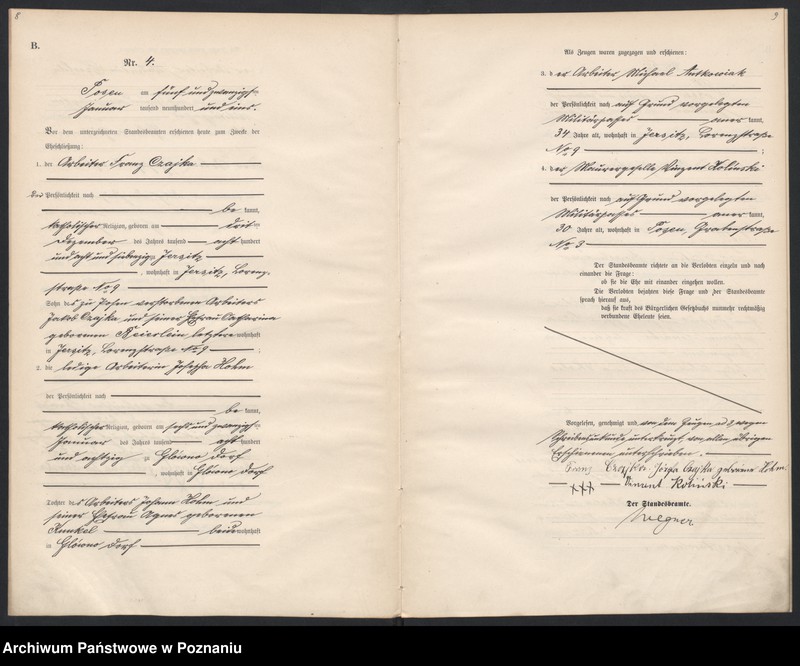 8
B.
Nr. 4.
Posen am fünf und zwanzigsten
Januar tausend neunhundert und eins.
Vor dem unterzeichneten Standesbeamten erschienen heute zum Zwecke der
Eheschließung:
1. der Arbeiter Franz Czajka
der Persönlichkeit nach
be kannt,
katholischer Religion, geboren am
Dezember des Jahres tausend acht hundert
und acht und siebenzig, Jersitz
, wohnhaft in Jersitz, Lorenz-
straße No 9
Sohn des zu Posen verstorbenen Arbeiters
Jakob Czajka und seiner Ehefrau Catharina
geborenen letztere wohnhaft
in Jersitz, Lorenzstraße No 9 ;
2. die ledige Arbeiterin Josepha Hohm
der Persönlichkeit nach
be kannt,
katholischer Religion, geboren am sechs und zwanzigsten
Januar des Jahres tausend acht hundert
und achtzig zu Glowno Dorf
, wohnhaft in Glowno Dorf
Tochter des Arbeiters Johann Hohm und
seiner Ehefrau Agnes geborenen
Kunkel beide wohnhaft
in Glowno Dorf
9
Als Zeugen waren zugezogen und erschienen:
3. der Arbeiter Michael Antkowiak
der Persönlichkeit nach auf Grund vorgelegten
Militärpasses aner kannt,
34 Jahre alt, wohnhaft in Jersitz, Lorenzstraße
No 9 ;
4. der Maurergeselle Vinzent Kolinski
der Persönlichkeit nach auf Grund vorgelegten
Militärpasses aner kannt,
30 Jahre alt, wohnhaft in Posen,
No 3
Der Standesbeamte richtete an die Verlobten einzeln und nach
einander die Frage:
ob sie die Ehe mit einander eingehen wollen.
Die Verlobten bejahten diese Frage und der Standesbeamte
sprach hierauf aus,
daß sie kraft des Bürgerlichen Gesetzbuchs nunmehr rechtmäßig
verbundene Eheleute seien.
Vorgelesen, genehmigt und von dem Zeugen ad 3 wegen
Schreibensunkunde unterkreuzt, von allen übrigen
Erschienenen unterschrieben.
Franz Czajka Józefa Czajka geborene Hohm.
+++ Vincent Koliński
Der Standesbeamte.
Wegner
Archiwum Państwowe w Poznaniu